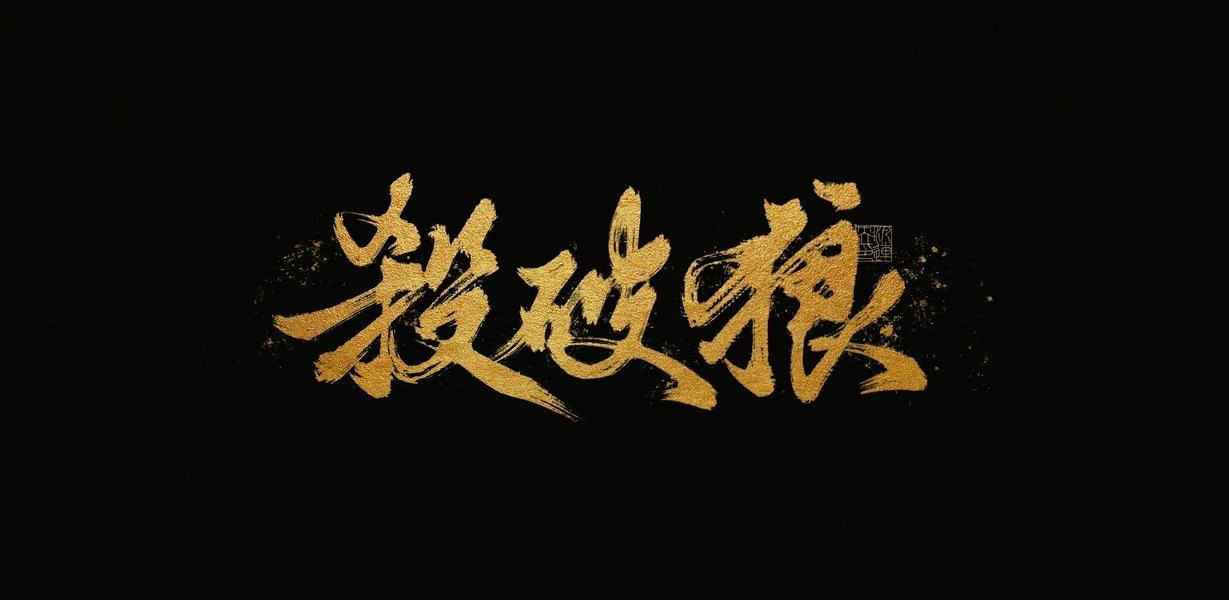 殺破狼